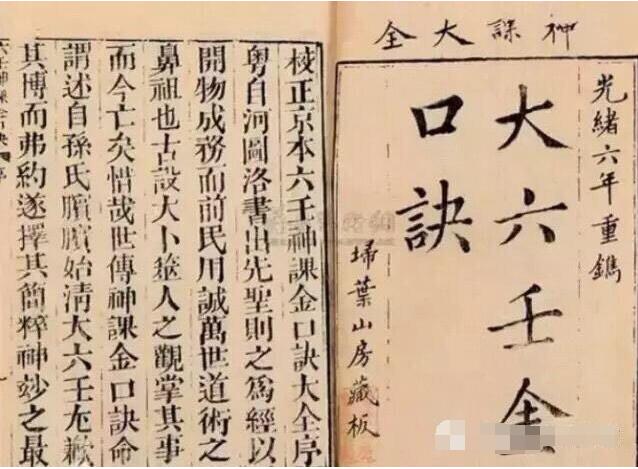 神課大全
光緒六年重鐫
大六壬金
口訣
埽葉山房藏板
校正京本六壬神課金口訣大全序
粵自河圖洛書出先聖則之爲經以
開物成務而前民用誠萬世道術之
鼻祖也古設大卜筮人之觀掌其事
而今亡矣惜哉世傳神課金口訣命
謂述自孫氏臏臏始淸大六壬歉
其博而弗約遂擇其簡粹神妙之最